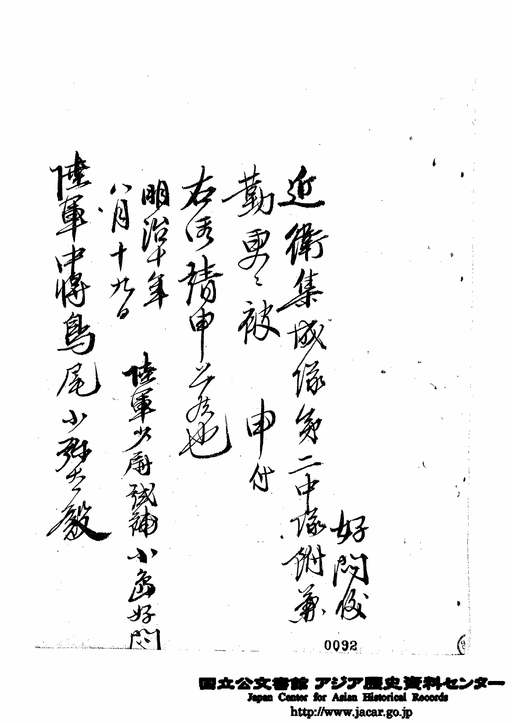 好問儀
近衛集成隊第二中隊附兼
勤更ニ被 申付
右御請申上候也
明治十年
八月十九日
陸軍少尉試補小島好問
陸軍中将鳥尾小弥太殿
0092
国立公文書館 アジア歴史資料センター
Japan Center for Asian Historical Records
http://www.jacar.go.jp